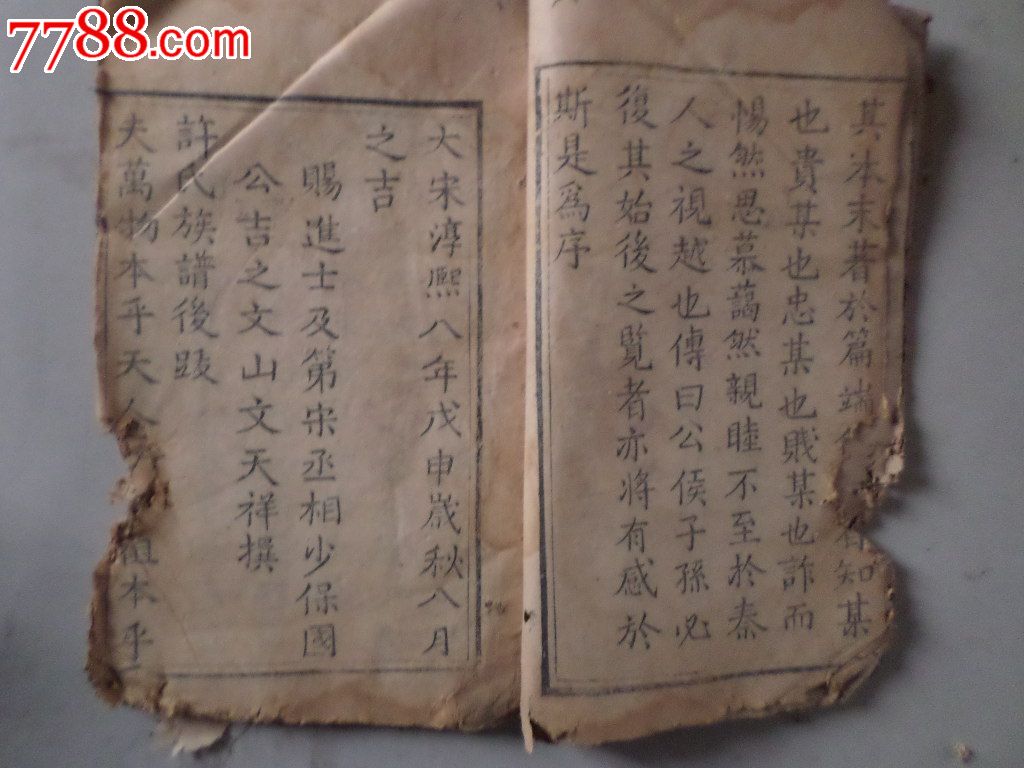 7788.com
其本末著於篇端知某
也貴某也忠某也賤某也詐而
惕然思慕藹然親睦不至於秦
人之視越也傳曰公侯子孫必
復其始後之覽者亦將有感於
斯是為序
大宋淳熙八年戊申歲秋八月
之吉
賜進士及第宋丞相少保國
公吉之文山文天祥撰
許氏族譜後跋
夫萬物本乎天人祖本乎